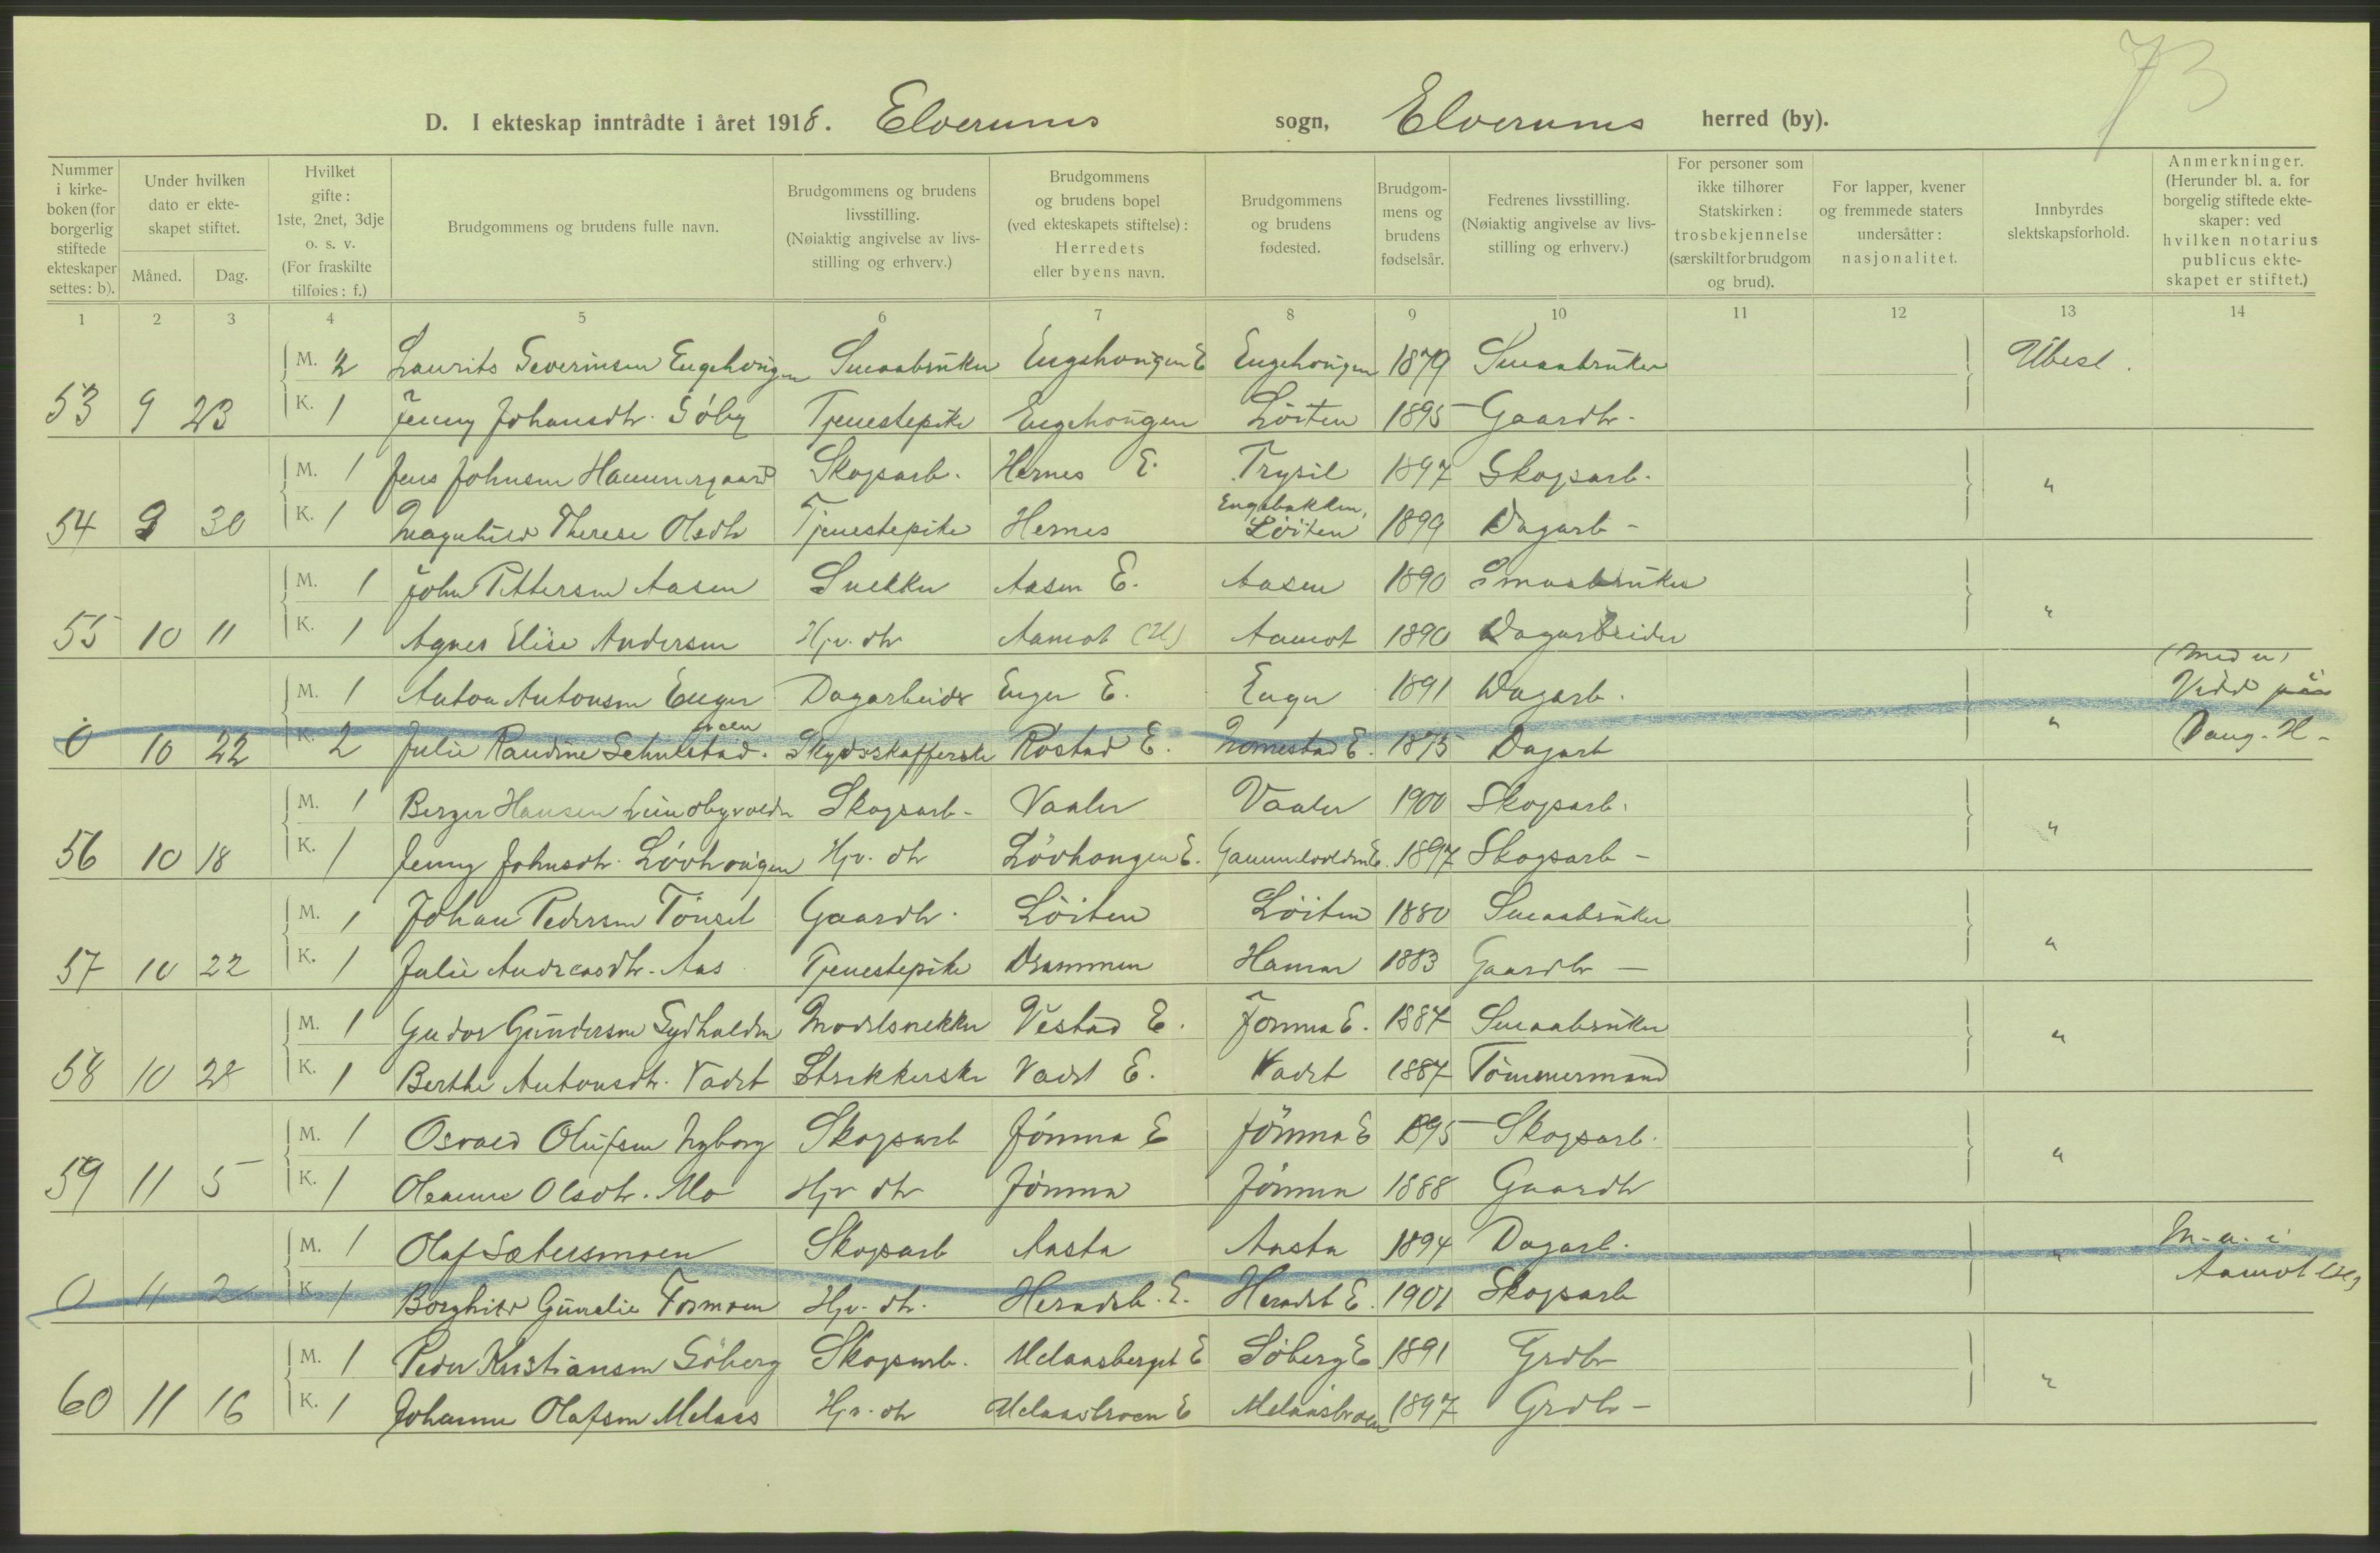 73
D. I ekteskap inntrådte i året 1918. Elverums sogn, Elverums herred (by).
Nummer i kirkeboken (for borgerlig stiftede ekteskaper settes: b).
Under hvilken dato er ekteskapet stiftet.
Måned. Dag.
Hvilket gifte: 1ste, 2net, 3dje o. s. v. (For fraskilte tilføies: f.)
Brudgommens og brudens fulle navn.
Brudgommens og brudens livsstilling. (Nøiaktig angivelse av livsstilling og erhverv.)
Brudgommens og brudens bopel (ved ekteskapets stiftelse): Herredets eller byens navn.
Brudgommens og brudens fødested.
Brudgommens og brudens fødselsår.
Fedrenes livsstilling. (Nøiaktig angivelse av livsstilling og erhverv.)
For personer som ikke tilhører Statskirken: trosbekjennelse (særskilt for brudgom og brud).
For lapper, kvener og fremmede staters undersåtter: nasjonalitet.
Innbyrdes slektskapsforhold.
Anmerkninger. (Herunder bl. a. for borgelig stiftede ekteskaper: ved hvilken notarius publicus ekteskapet er stiftet.)
1 2 3 4 5 6 7 8 9 10 11 12 13 14
M. 2 Laurits Severinsen Engehougen Smaabruker Engehougen E Engehougen 1879 Smaabruker Ubesl.
53 9 23 K. 1 Jenny Johansdtr. Söby Tjenestepike Engehougen Löiten 1895 Gaardbr.
M. 1 Jens Johnsen Hammergaard Skogsarb. Hernes E. Trysil 1897 Skogsarb. "
54 9 30 K. 1 Magnhild Therese Olsdtr Tjenestepike Hernes Engebakken, Löiten 1899 Dagarb -
M. 1 John Pettersen Aasen Snekker Aasen E. Aasen 1890 Smaabruker "
55 10 11 K. 1 Agnes Elise Andersen Hjv. dtr Aamot (H) Aamot 1890 Dagarbeider
M. 1 Anton Antonsen Enger Dagarbeider Enger E. Enger 1891 Dagarb. " (Med u)
Vidd paa
0 10 22 K. 2 Julie Randine Schulstad. Skydsskafferske Rostad E. Nomestad E. 1875 Dagarb Vang. H -
M. 1 Berger Hansen Lundbyvolden Skogsarb - Vaaler Vaaler 1900 Skogsarb. "
56 10 18 K. 1 Jenny Johnsdtr. Lövhougen Hjv. dtr Lövhougen E. Gammelvolden E. 1897 Skogsarb -
M. 1 Johan Pedersen Tönset Gaardbr. Löiten Löiten 1880 Smaabruker "
57 10 22 K. 1 Julie Andreasdtr. Aas Tjenestepike Drammen Hamar 1883 Gaardbr -
M. 1 Gudor Gundersen Sydhalden Modelsnekker Vestad E. Jömna E. 1887 Smaabruker "
58 10 28 K. 1 Berthe Antonsdtr. Vadet Strikkerske Vadet E. Vadet 1887 Tömmermand
M. 1 Osvald Olufsen Nyborg Skogsarb Jömna E Jömna E 1895 Skogsarb. "
59 11 5 K. 1 Oleanna Olsdtr. Mo Hjv dtr Jömna Jömna 1888 Gaardbr
M. 1 Olaf Sætersmoen Skogsarb Aasta Aasta 1894 Dagarb. " M. u. i
0 11 2 K. 1 Borghild Gunelie Formoen Hjv. dtr. Heradsb. E. Heradsb E. 1901 Skogsarb Aamot (H)
M. 1 Peder Kristiansen Söberg Skogsarb. Melaasberget E Söberg E 1891 Grdbr "
60 11 16 K. 1 Johanne Olafsen Melaas Hjv. dtr Melaasbroen E Melaasbroen 1897 Grdbr -